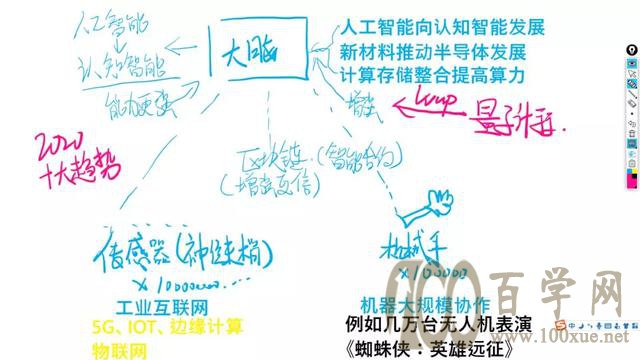 人工智能
认知智能
能力更强
大脑
人工智能向认知智能发展
新材料推动半导体发展
计算存储整合提高算力
增强
量子计算
2020
十大趋势
区块链(智能合约)
(增强互信)
传感器(神经末梢)
×10000000...
工业互联网
5G、IOT、边缘计算
物联网
机械手
×100000
机器大规模协作
例如几万台无人机表演
《蜘蛛侠：英雄远征》
100百学网
www.100xue.net